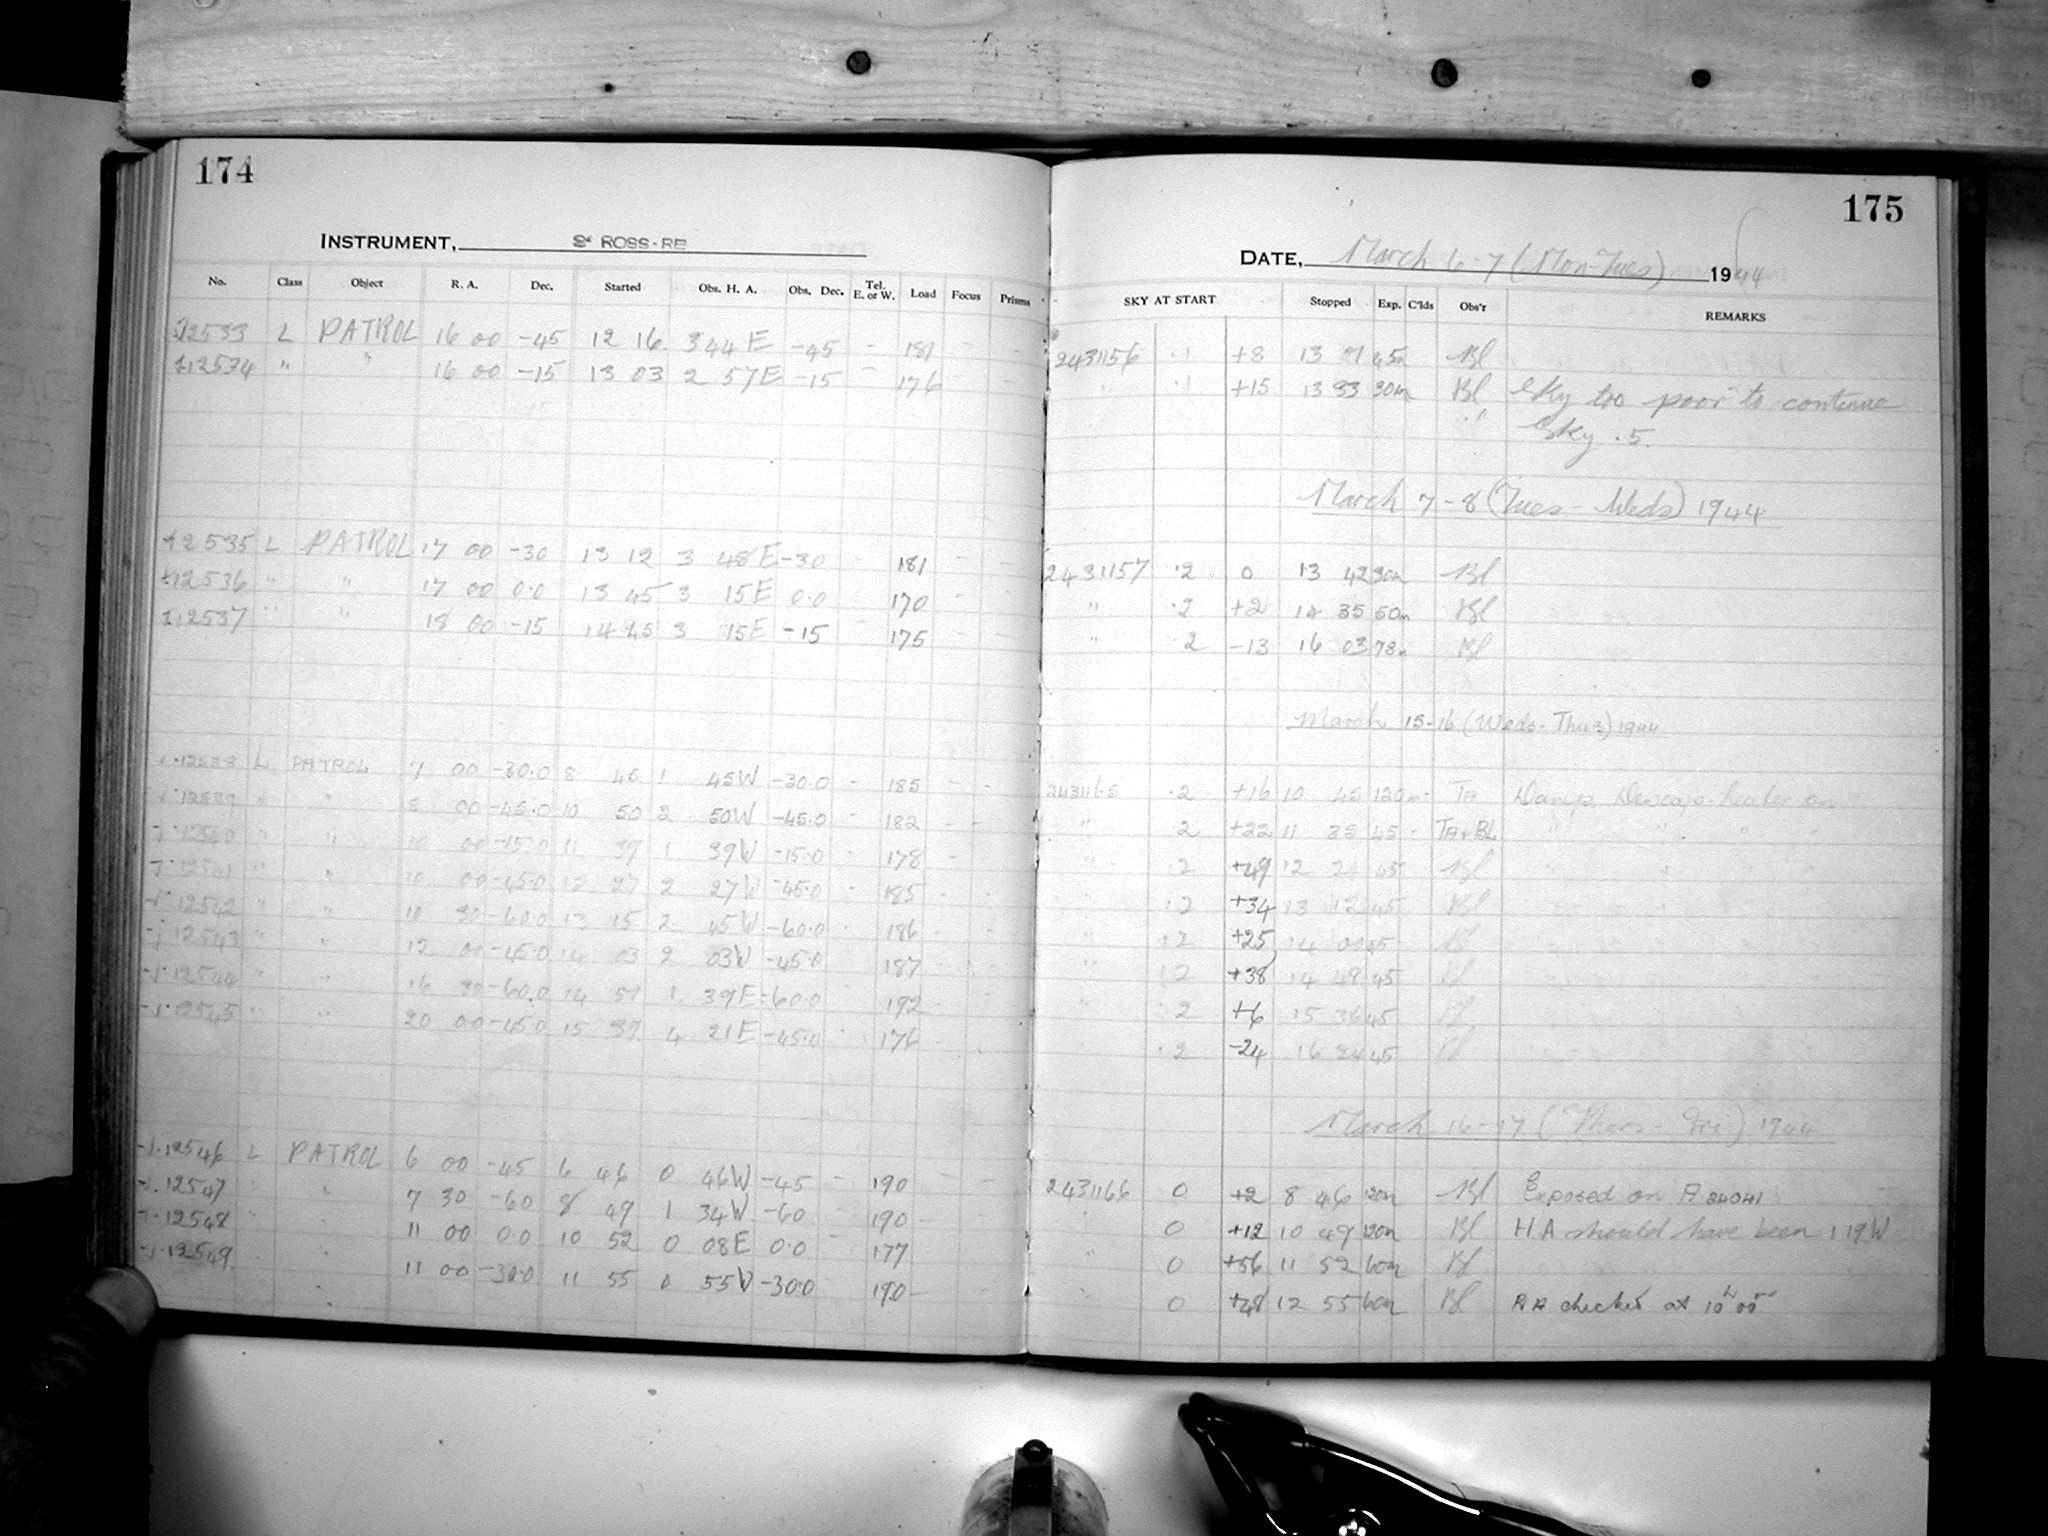 174
INSTRUMENT, 3" ROSS-RE
No. Class Object R. A. Dec. Started Obs. H. A. Obs. Dec. Tel. E. or W. Load Focus Prisms
12533 L PATROL 16 00 -45 12 16 3 44 E -45 - 181 - -
12534 " " 16 00 -15 13 03 2 57 E -15 - 176 - -
12535 L PATROL 17 00 -30 13 12 3 48 E -30 - 181 - -
12536 " " 17 00 0.0 13 45 3 15 E 0.0 170 - -
12537 " " 18 00 -15 14 45 3 15 E -15 175 - -
12538 L PATROL 7 00 -30.0 8 45 1 45 W -30.0 - 185 - -
12539 " " 8 00 -45.0 10 50 2 50 W -45.0 - 182 - -
12540 " " 10 00 -15.0 11 39 1 39 W -15.0 - 178 - -
12541 " " 10 00 -45.0 12 27 2 27 W -45.0 - 185 - -
12542 " " 10 30 -60.0 13 15 2 45 W -60.0 - 186 - -
12543 " " 12 00 -45.0 14 03 2 03 W -45.0 187 - -
12544 " " 16 30 -60.0 14 51 1 39 E -60.0 192 -
12545 " " 20 00 -45.0 15 39 4 21 E -45.0 176 -
12546 L PATROL 6 00 -45 6 46 0 46 W -45 - 190 - -
12547 " 7 30 -60 8 49 1 34 W -60 190 -
12548 11 00 0.0 10 52 0 08 E 0.0 - 177
12549 11 00 -30.0 11 55 0 55 W -30.0 190 -
175
DATE, March 6-7 (Mon-Tues) 1944
SKY AT START Stopped Exp. C'lds Obs'r REMARKS
2431156 .1 +8 13 01 45m Bl
" .1 +15 13 33 30m Bl Sky too poor to continue
Sky .5.
March 7-8 (Tues - Weds) 1944
2431157 .2 0 13 42 30m Bl
" .2 +2 14 35 50m Bl
" 2 -13 16 03 78m Bl
March 15-16 (Weds-Thurs) 1944
2431165 .2 +16 10 45 120m TA Damp, Dewcap-heater on
" .2 +22 11 35 45 TA+BL " " " "
" .2 +49 12 24 45 Bl
.2 +34 13 12 45 Bl
" .2 +25 14 00 45 Bl
" .2 +38 14 48 45 Bl
" .2 +6 15 36 45 Bl
.2 -24 16 24 45 Bl
March 16-17 (Thurs - Fri) 1944
2431166 0 +2 8 46 120m Bl Exposed on A 24041
" 0 +12 10 49 120m Bl H A should have been 1 19 W
" 0 +56 11 52 60m Bl
" 0 +48 12 55 60m Bl RA checked at 10h 00m